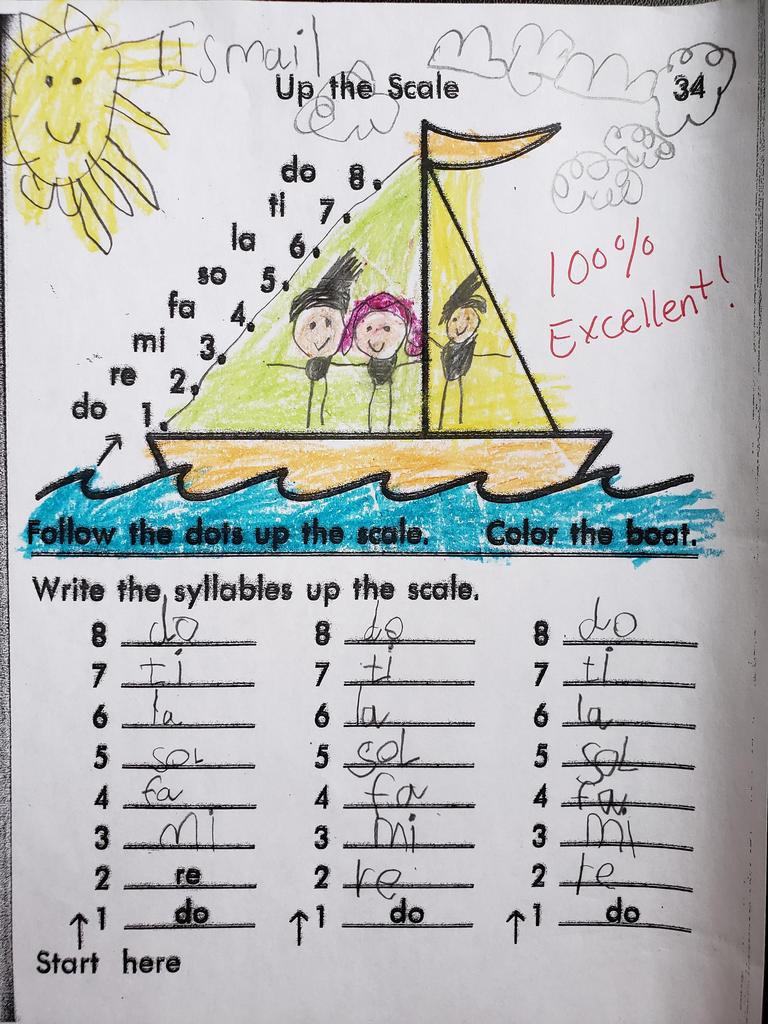 Ismail
Up the Scale 34
do 8.
ti 7.
la 6.
so 5.
fa 4.
mi 3.
re 2.
do 1.
100%
Excellent!
Follow the dots up the scale. Color the boat.
Write the syllables up the scale.
8 do 8 do 8 do
7 ti 7 ti 7 ti
6 la 6 la 6 la
5 soL 5 soL 5 soL
4 fa 4 fa 4 fa
3 mi 3 mi 3 mi
2 re 2 re 2 re
↑1 do ↑1 do ↑1 do
Start here